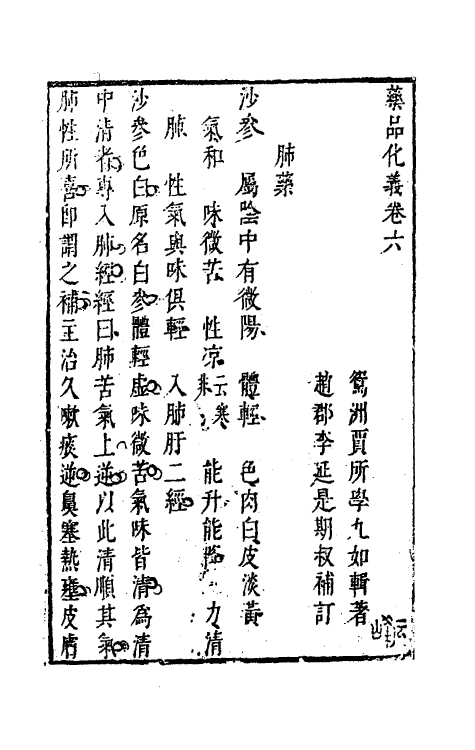 藥品化義卷六
鴛洲賈所學九如輯著
趙郡李延是期叔補訂
肺藥
沙參　屬陰中有微陽　體輕　色肉白皮淡黃
氣和　味微苦　性凉云寒未　能升能降　力清
肺　性氣與味俱輕　入肺肝二經
沙參色白原名白參體輕虛味微苦氣味皆清為清
中清者專入肺經經曰肺苦氣上逆以此清順其氣
肺性所喜即謂之補主治久嗽痰逆鼻塞熱壅皮膚